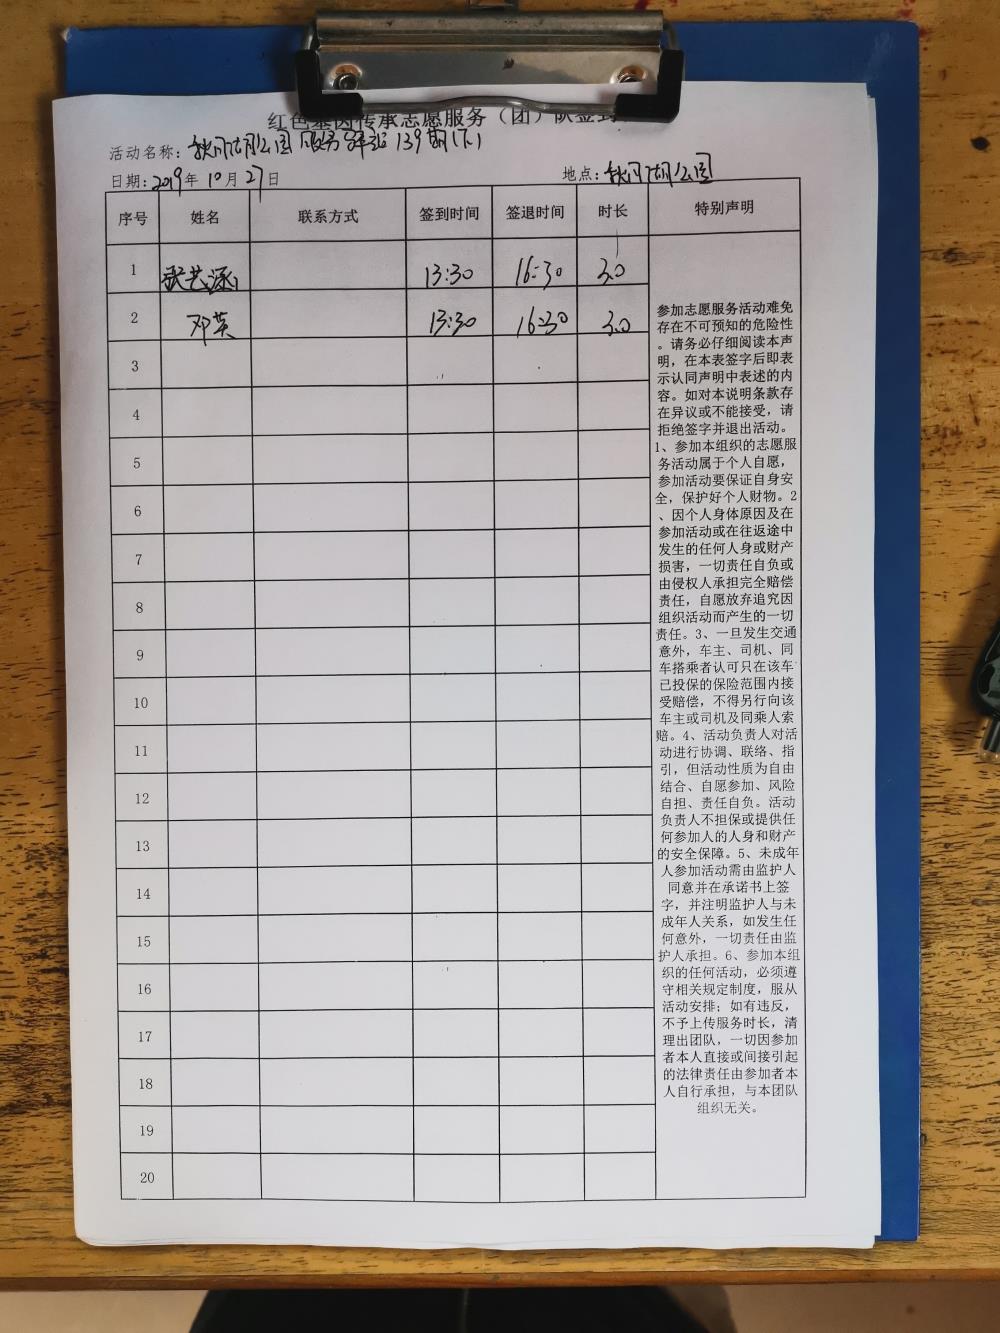 红色基因传承志愿服务（团）队签到
活动名称：秋月湖公园服务驿站139期(下)
日期：2019年10月27日 地点：秋月湖公园
序号 姓名 联系方式 签到时间 签退时间 时长 特别声明
1 13:30 16:30 3.0
2 邓英 13:30 16:30 3.0
3
4
5
6
7
8
9
10
11
12
13
14
15
16
17
18
19
20
参加志愿服务活动难免
存在不可预知的危险性
。请务必仔细阅读本声
明，在本表签字后即表
示认同声明中表述的内
容。如对本说明条款存
在异议或不能接受，请
拒绝签字并退出活动。
1、参加本组织的志愿服
务活动属于个人自愿，
参加活动要保证自身安
全，保护好个人财物。2
、因个人身体原因及在
参加活动或在往返途中
发生的任何人身或财产
损害，一切责任自负或
由侵权人承担完全赔偿
责任，自愿放弃追究因
组织活动而产生的一切
责任。3、一旦发生交通
意外，车主、司机、同
车搭乘者认可只在该车
已投保的保险范围内接
受赔偿，不得另行向该
车主或司机及同乘人索
赔。4、活动负责人对活
动进行协调、联络、指
引，但活动性质为自由
结合、自愿参加、风险
自担、责任自负。活动
负责人不担保或提供任
何参加人的人身和财产
的安全保障。5、未成年
人参加活动需由监护人
同意并在承诺书上签
字，并注明监护人与未
成年人关系，如发生任
何意外，一切责任由监
护人承担。6、参加本组
织的任何活动，必须遵
守相关规定制度，服从
活动安排；如有违反，
不予上传服务时长，清
理出团队，一切因参加
者本人直接或间接引起
的法律责任由参加者本
人自行承担，与本团队
组织无关。